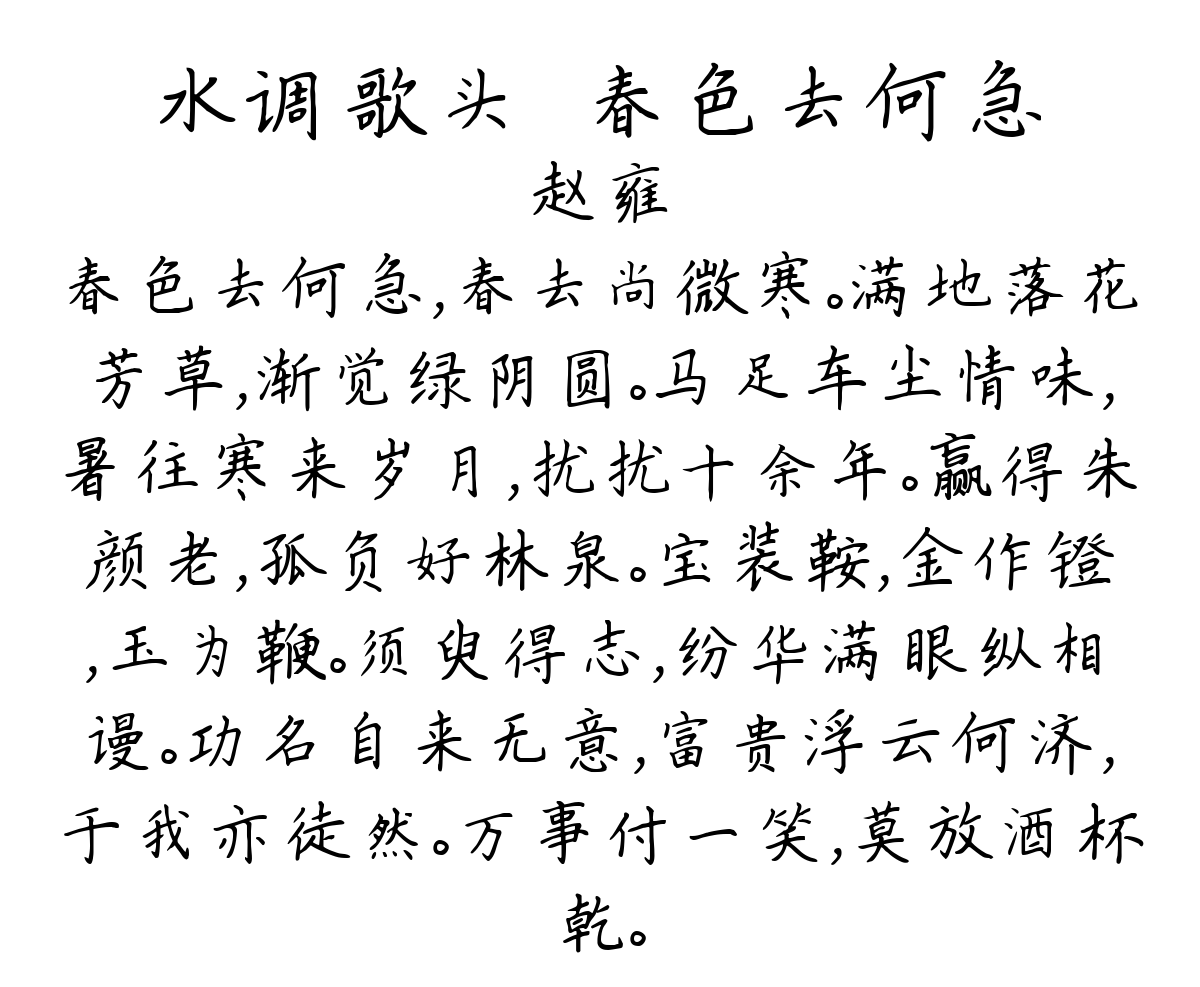 水调歌头 春色去何急
赵雍
春色去何急,春去尚微寒。满地落花
芳草,渐觉绿阴圆。马足车尘情味,
暑往寒来岁月,扰扰十余年。赢得朱
颜老,孤负好林泉。宝装鞍,金作镫
,玉为鞭。须臾得志,纷华满眼纵相
谩。功名自来无意,富贵浮云何济,
于我亦徒然。万事付一笑,莫放酒杯
乾。